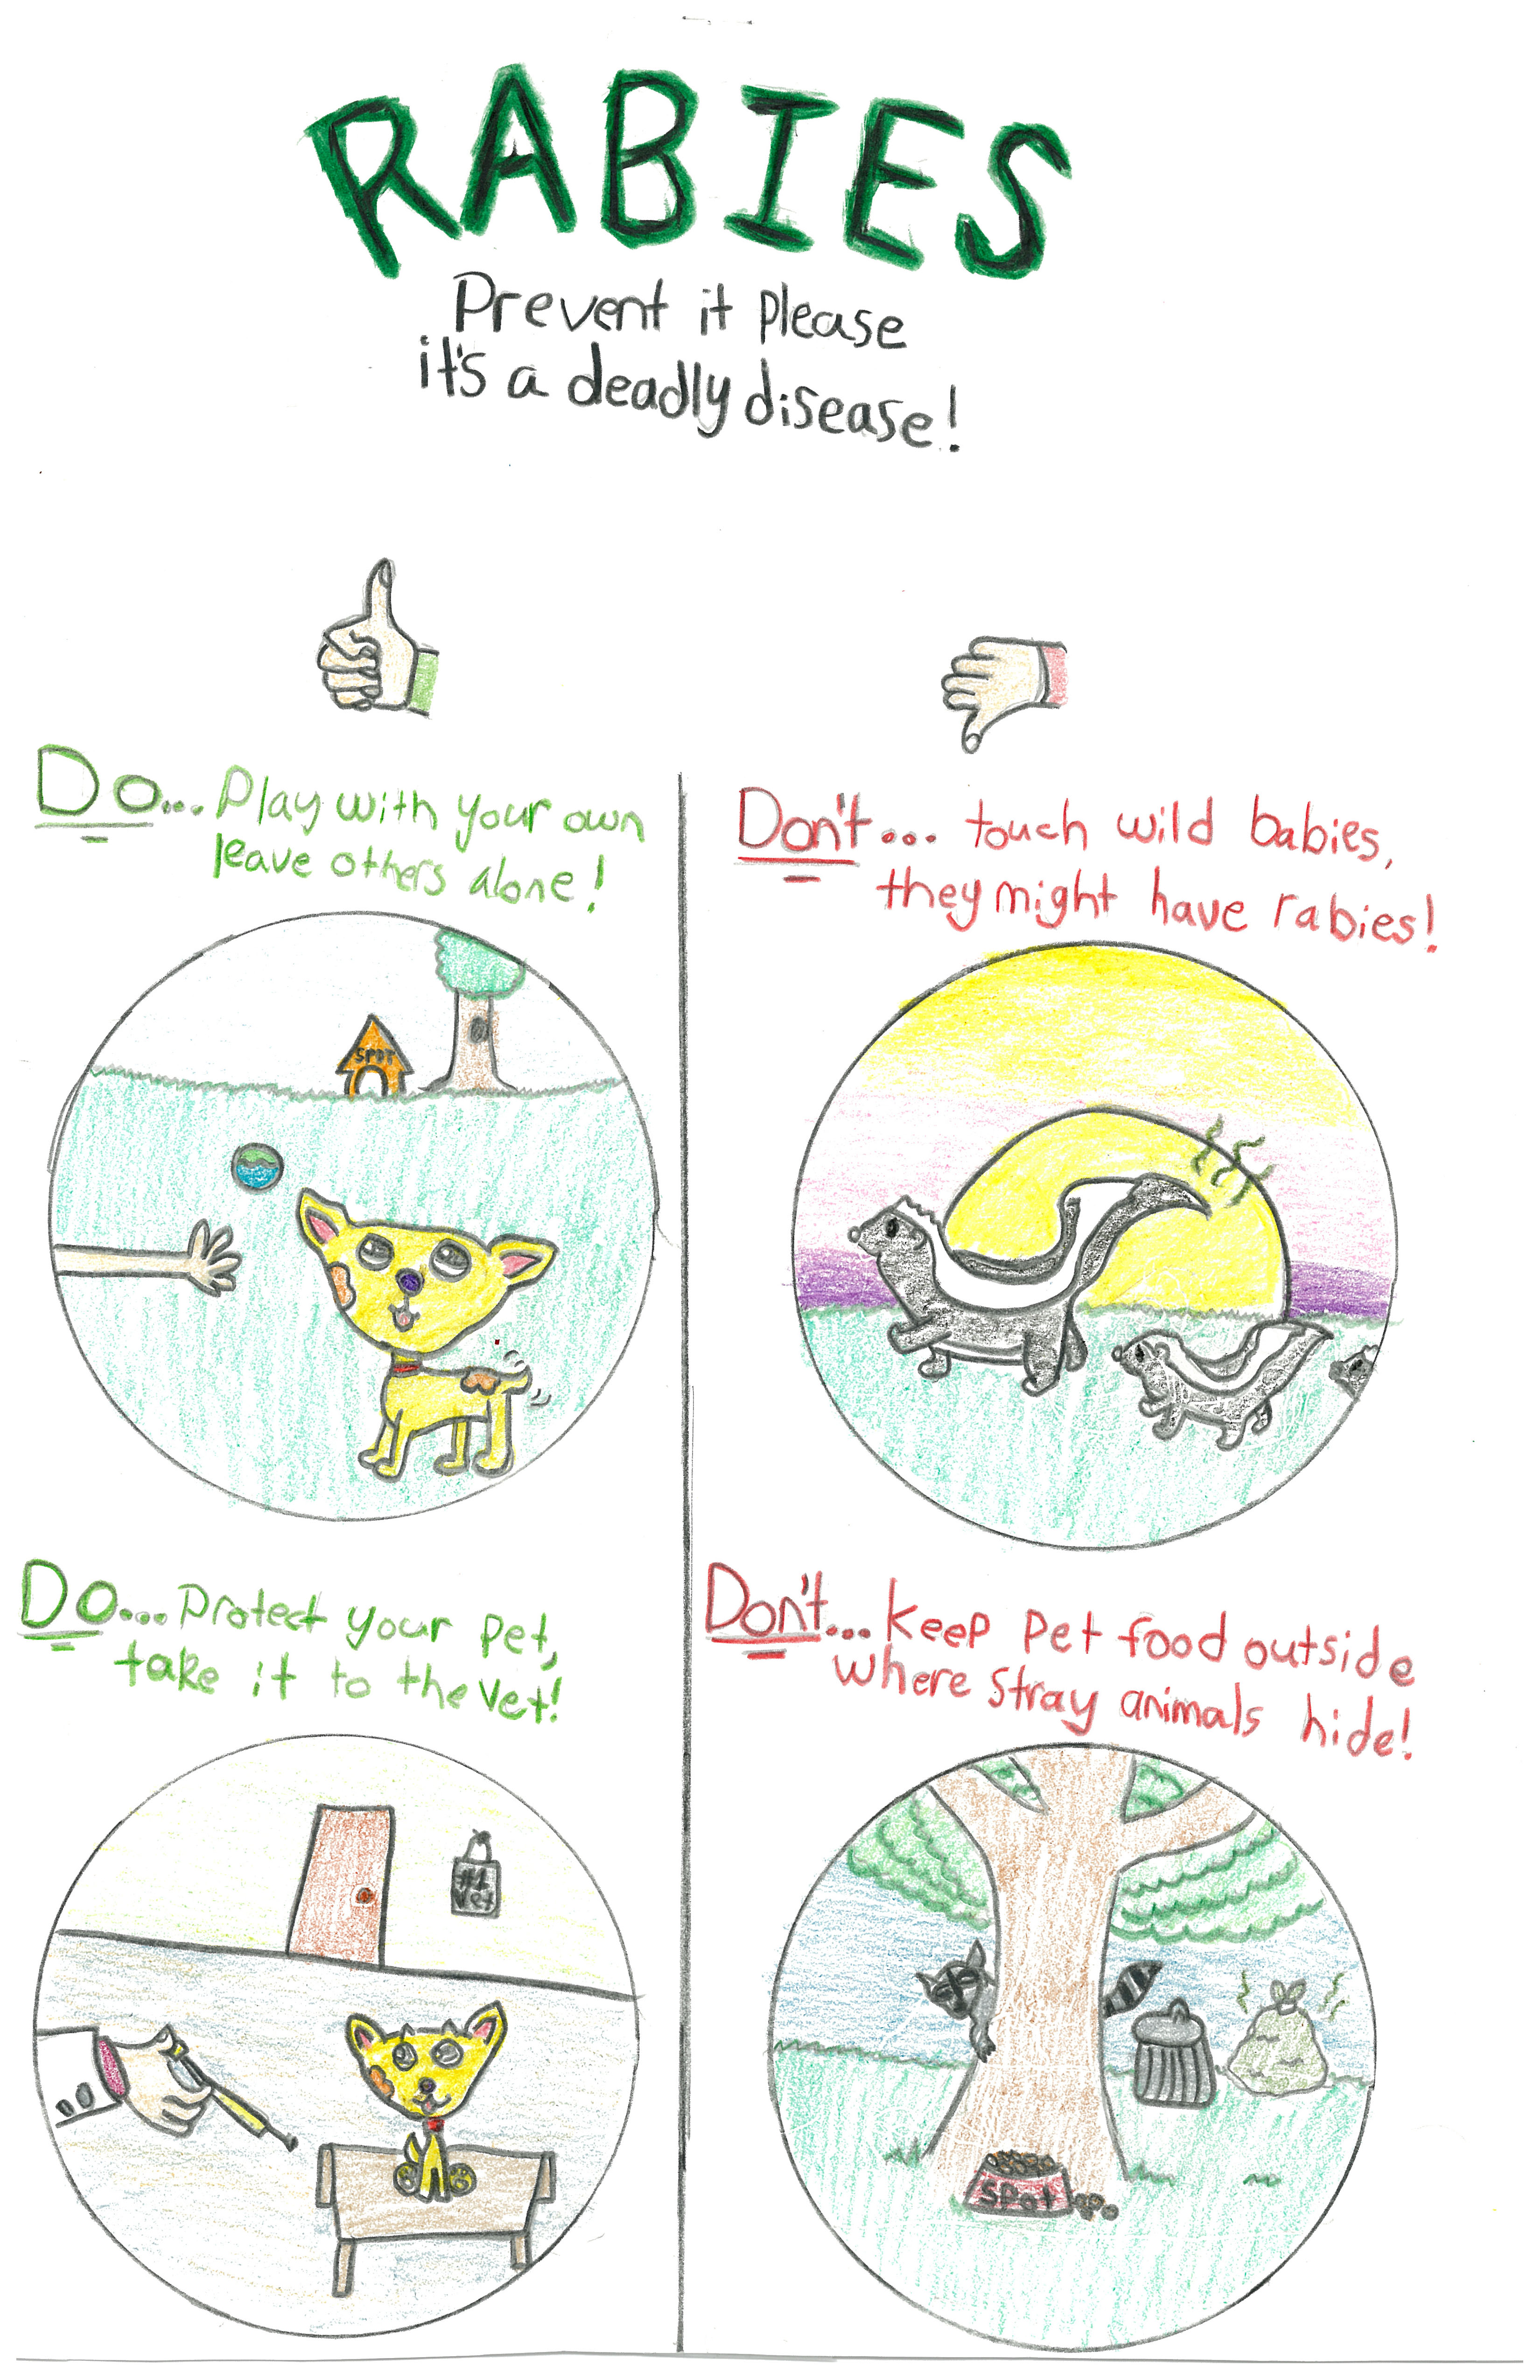 RABIES
Prevent it please
it's a deadly disease!
Do... Play with your own
leave others alone!
SPOT
Do... Protect your pet,
take it to the vet!
#1
vet
Don't... touch wild babies,
they might have rabies!
Don't... keep pet food outside
where stray animals hide!
SPot